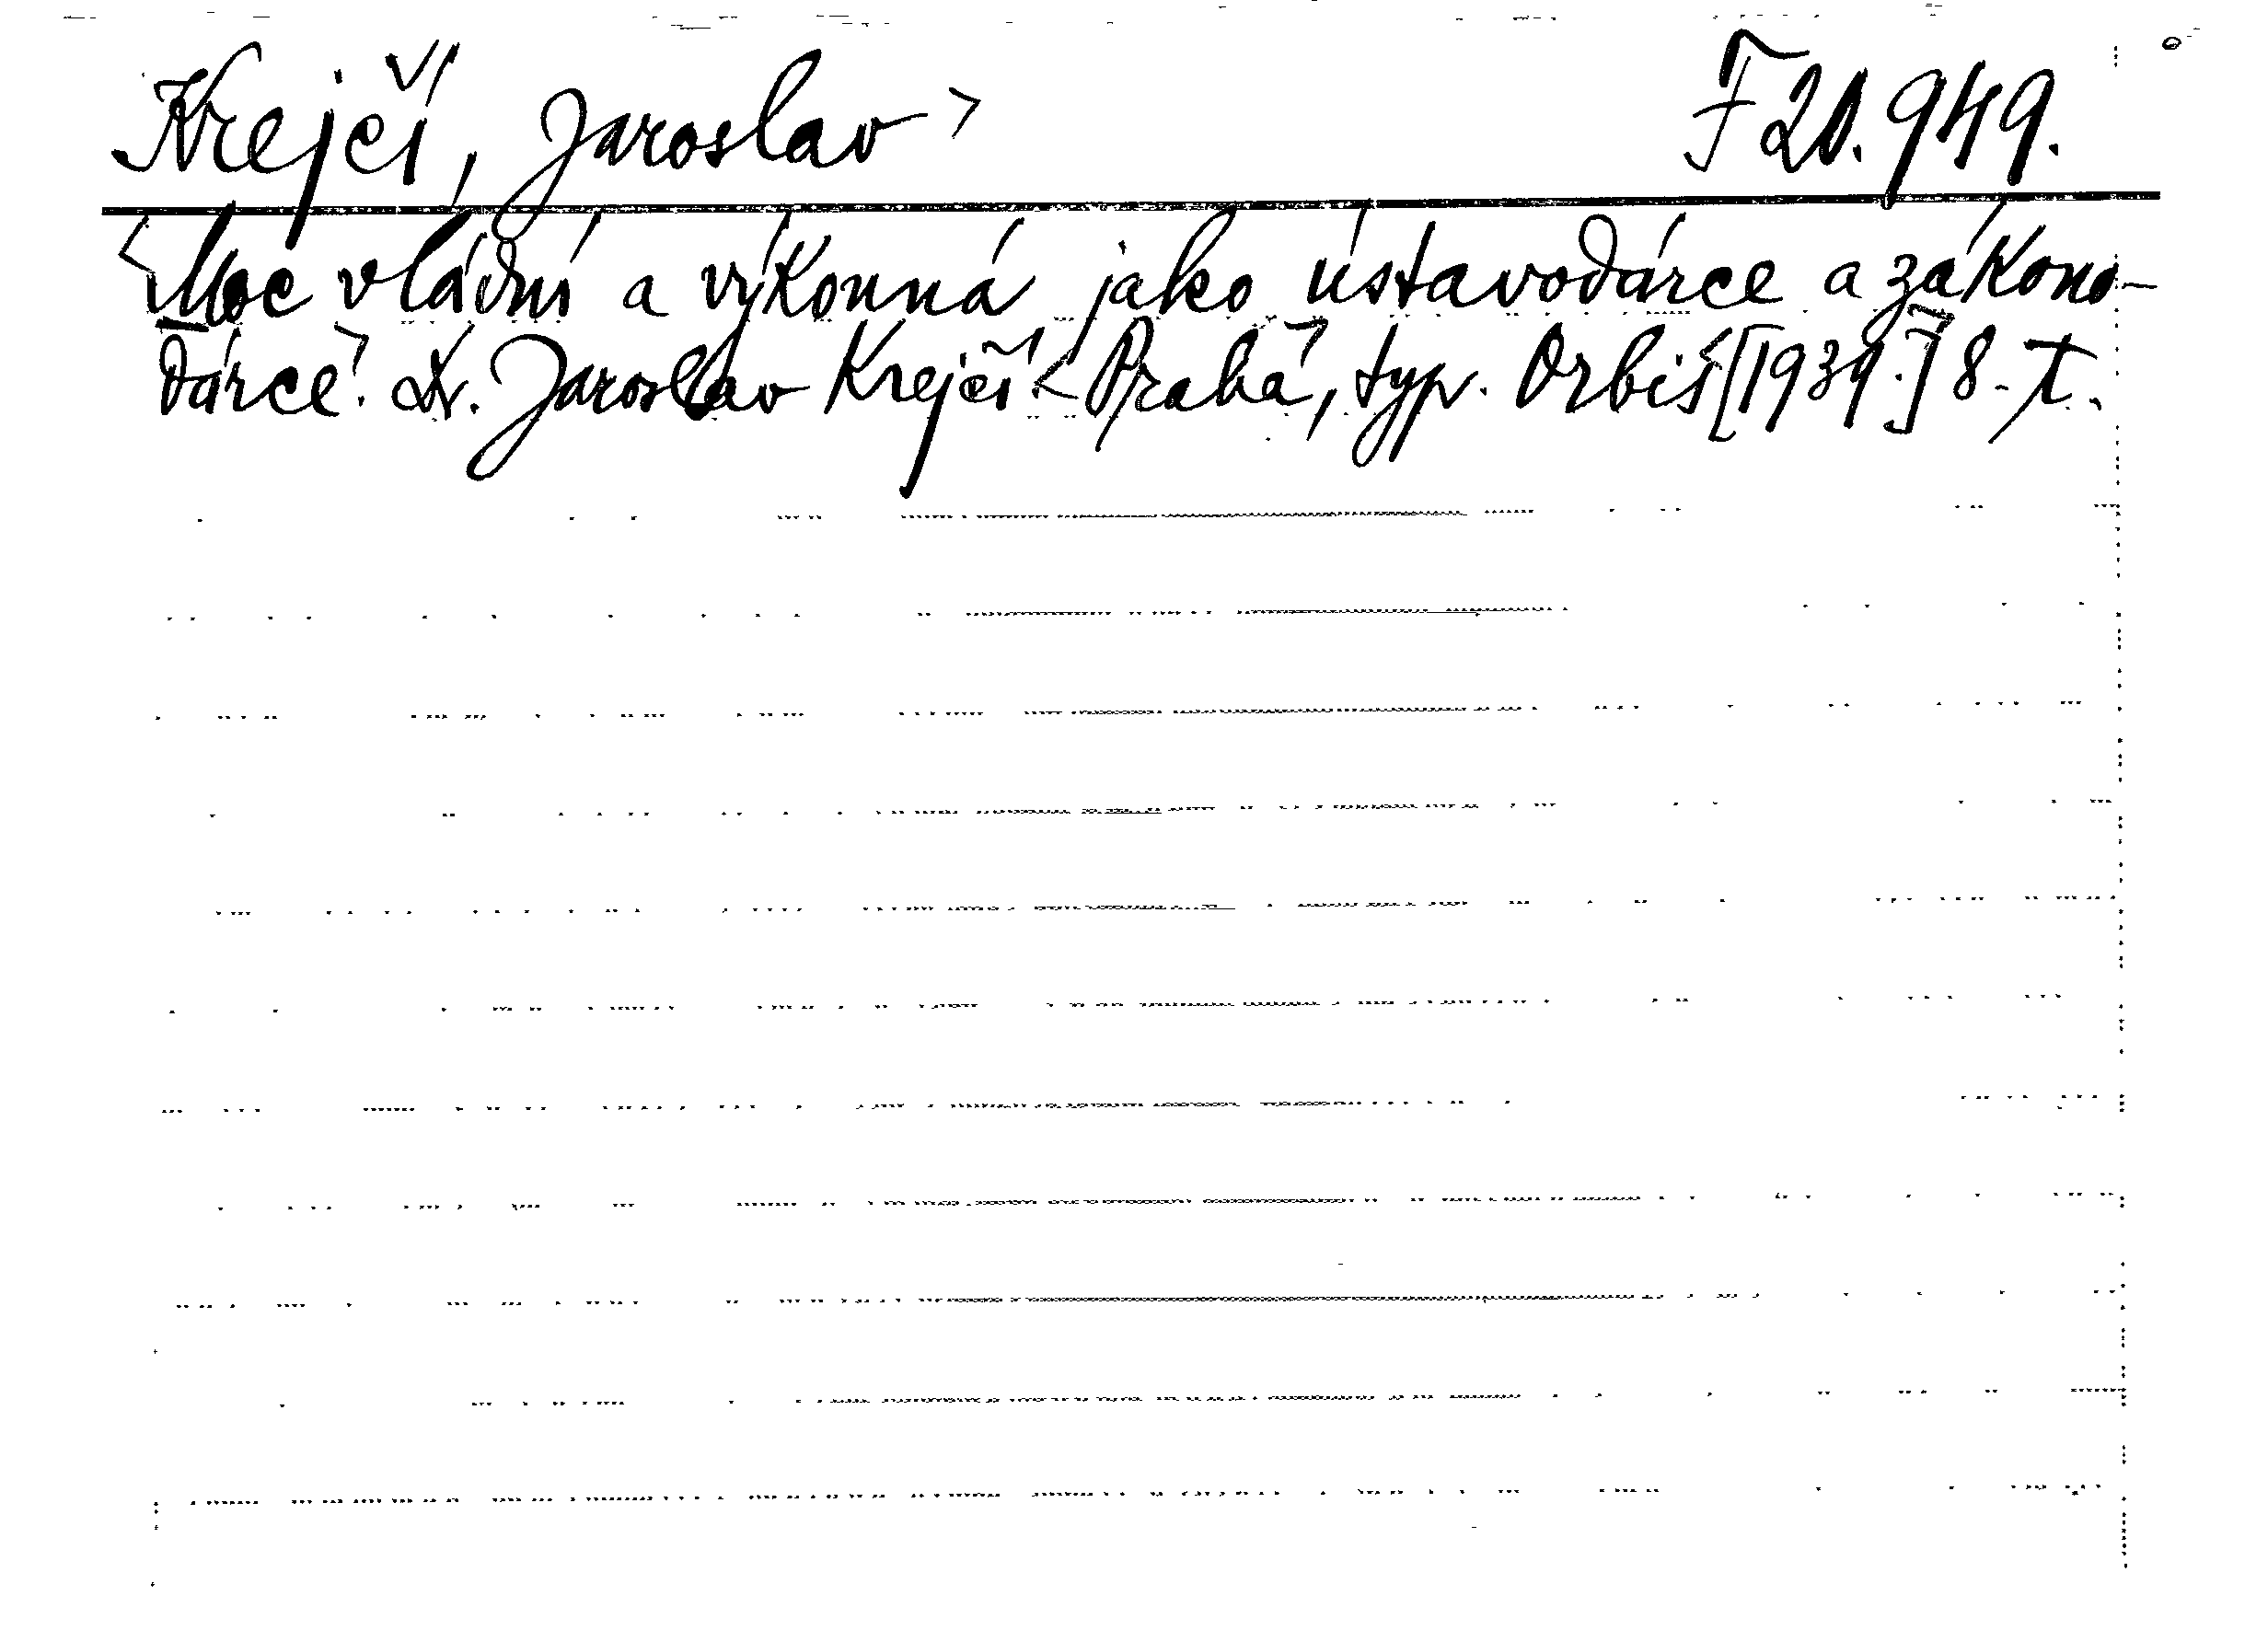 Krejčí, Jaroslav> F 20.949.
<Moc vládní a výkonná jako ústavodárce a zákono-
dárce>. Dr. Jaroslav Krejčí <Praha>, typ. Orbis <[1939.]> 8-t.